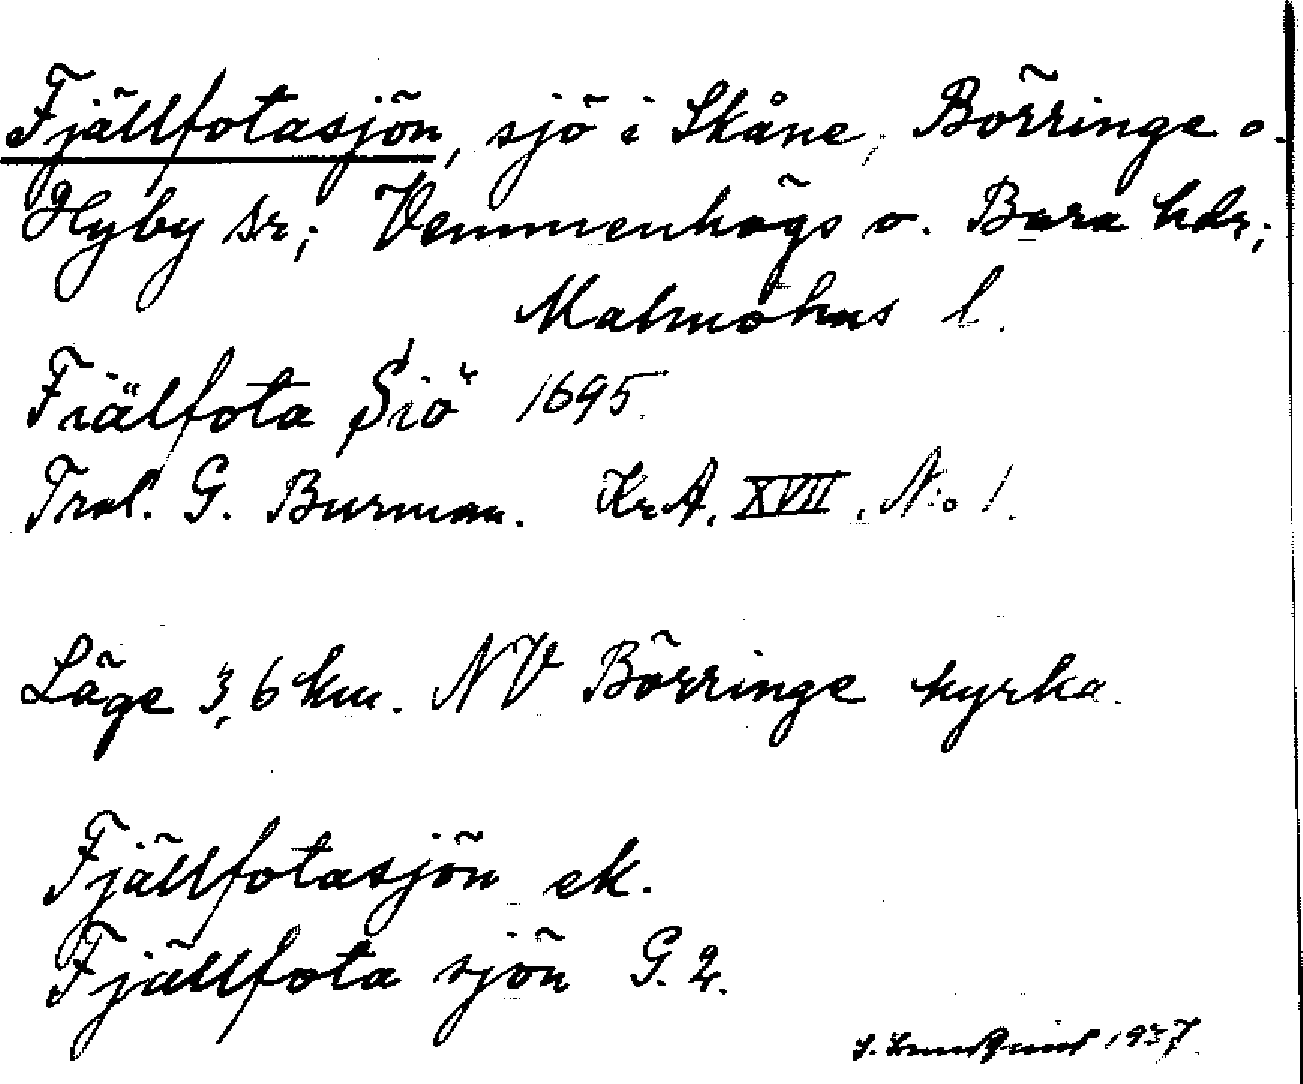 Fjällfotasjön, sjö i Skåne, Börringe o.
Hyby sr; Vemmenhögs o. Bara hdr;
Malmöhus l.
Fiälfota Siö 1695.
Trol. G. Burman. Kr.A. XVII. No 1.
Läge 3,6 km. NV Börringe kyrka.
Fjällfotasjön ek.
Fjällfota sjön G. 2.
1937